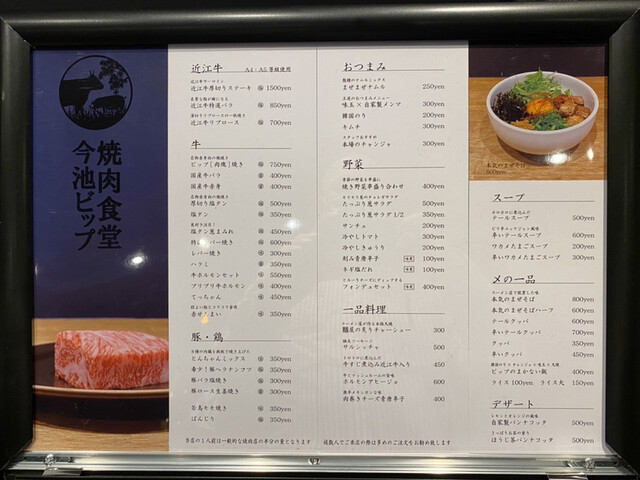 焼肉食堂
今池ビップ
近江牛 A4・A5等級使用
近江牛サーロイン
近江牛厚切りステーキ 1500yen
近江牛特選バラ 850yen
近江牛リブロース 700yen
牛
ビップ[肉塊]焼き 750yen
国産牛バラ 400yen
国産牛赤身 400yen
厚切り塩タン 500yen
塩タン 350yen
塩タン葱まみれ 450yen
600yen
レバー焼き 300yen
ハラミ 350yen
牛ホルモンセット 550yen
プリプリ牛ホルモン 400yen
てっちゃん 450yen
350yen
豚・鶏
とんちゃんミックス 350yen
希少!豚ハラナンコツ 350yen
豚バラ塩焼き 300yen
豚ロース生姜焼き 300yen
若鳥モモ焼き 350yen
ぱんじり 350yen
当店の1人前は一般的な焼肉店の半分の量となります
おつまみ
数種のナムルミックス
まぜまぜナムル 250yen
味玉×自家製メンマ 300yen
韓国のり 200yen
キムチ 300yen
スタッフおすすめ
本場のチャンジャ 300yen
野菜
季節の野菜を華麗に
焼き野菜華盛り合わせ 400yen
たっぷり葱サラダ 350yen
たっぷり葱サラダ 1/2 350yen
サンチュ 200yen
冷やしトマト 300yen
冷やしきゅうり 200yen
刻み青唐辛子 100yen
ネギ塩だれ 100yen
フォンデュセット 340yen
一品料理
麺屋の炙りチャーシュー 300
サルシッチャ 500
トロトロに煮込んだ
牛すじ煮込み近江牛入り 450
ホルモンアヒージョ 600
肉巻きチーズ青唐辛子 400
複数人でご来店の際は多めのご注文をお勧め致します
本気のまぜそば
800yen
スープ
テールスープ 500yen
辛いテールスープ 600yen
ワカメたまごスープ 200yen
辛いワカメたまごスープ 300yen
〆の一品
本気のまぜそば 800yen
本気のまぜそばハーフ 600yen
テールクッパ 600yen
辛いテールクッパ 700yen
クッパ 350yen
辛いクッパ 450yen
ビップのまかない飯 400yen
ライス 100yen ライス大 150yen
デザート
レモンとオレンジの風味
自家製パンナコッタ 500yen
ほうじ茶パンナコッタ 500yen